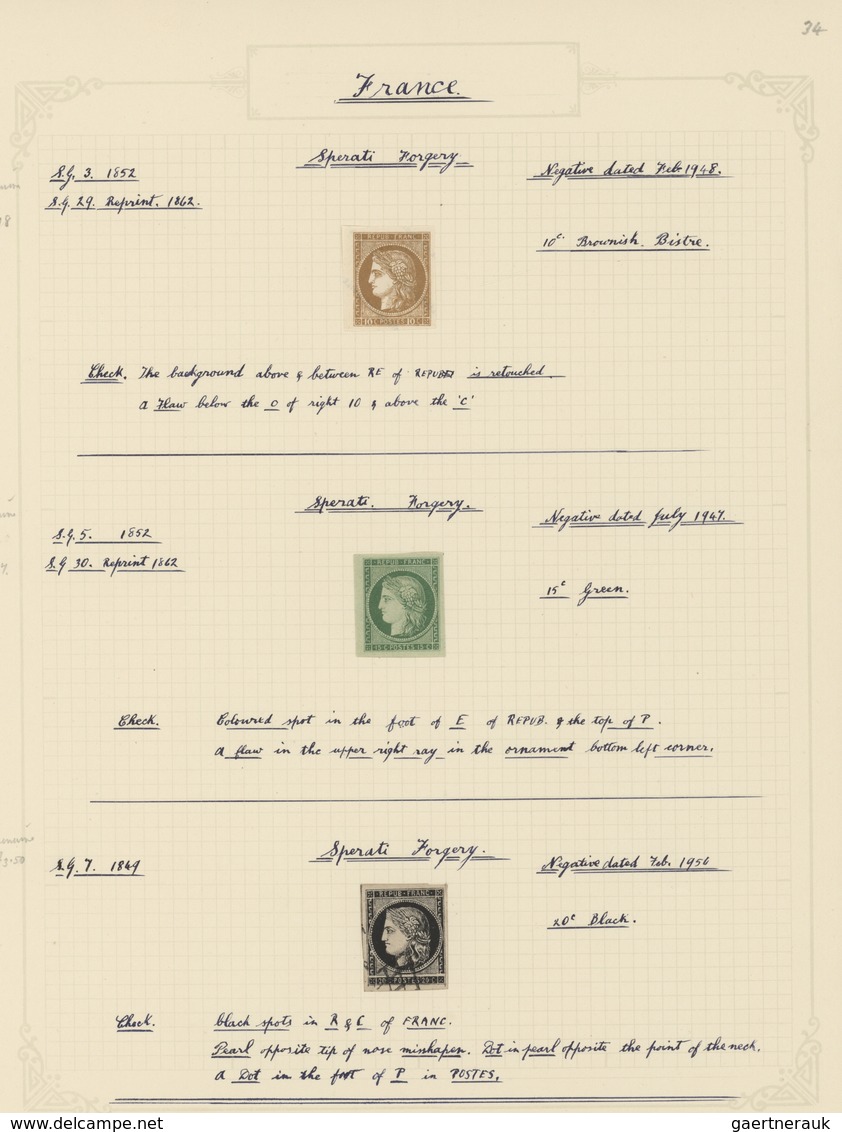 34
France.
Sperati Forgery.
S.G. 3. 1852
Negative dated Feb. 1948.
S.G. 29. Reprint. 1862.
18
10c. Brownish. Bistre.
REPUB FRANC
10 C POSTES 10 C
Check. The background above & between RE of REPUB is retouched.
a Flaw below the 0 of right 10 & above the 'C'
Sperati. Forgery.
S.G. 5. 1852
Negative dated July 1947.
S.G 30. Reprint 1862
15c Green.
REPUB FRANC
15 C POSTES 15 C
Check. Coloured spot in the foot of E of REPUB. & the top of P.
a flaw in the upper right ray in the ornament bottom left corner.
Sperati Forgery.
S.G. 7. 1849
Negative dated Feb. 1956
3.50
20c Black.
REPUB FRANC
20 C POSTES 20 C
Check. black spots in R & C of FRANC.
Pearl opposite tip of nose misshapen. Dot in pearl opposite the point of the neck.
a Dot in the foot of P in POSTES.
www.delcampe.net
gaertnerauk